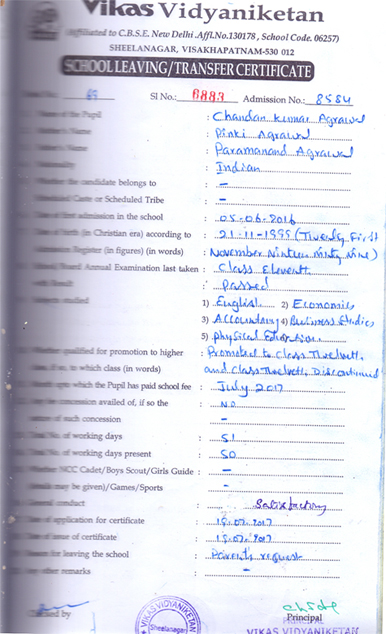 Vikas Vidyaniketan
(Affiliated to C.B.S.E. New Delhi .Affl.No.130178 , School Code. 06257)
SHEELANAGAR, VISAKHAPATNAM-530 012
SCHOOL LEAVING/TRANSFER CERTIFICATE
65 Sl No.: 6883 Admission No.: 8584
Name of the Pupil : Chandan Kumar Agrawal
Name : Pinki Agrawal
Name : Paramanand Agrawal
: Indian
Whether the candidate belongs to : –
Caste or Scheduled Tribe : –
first admission in the school : 05-06-2016
(in Christian era) according to : 21-11-1999 (Twenty First
Admission Register (in figures) (in words) : November Ninteen Ninty Nine)
Board Annual Examination last taken : Class Eleventh
Result : Passed
studied 1) English 2) Economics
3) Accountancy 4) Business Studies
5) Physical Education
qualified for promotion to higher : Promoted to Class Twelveth
if so, to which class (in words) and Class Twelveth Discontinued
upto which the Pupil has paid school fee : July 2017
concession availed of, if so the : No
nature of such concession : –
No. of working days : 51
No. of working days present : 50
Whether NCC Cadet/Boys Scout/Girls Guide : –
may be given)/Games/Sports : –
General conduct : Satisfactory
Date of application for certificate : 15.07.2017
Date of issue of certificate : 15.07.2017
Reason for leaving the school : Parents request
Any other remarks : –
by
Principal
VIKAS VIDYANIKETAN
Sheelanagar
PRINCIPAL
VIKAS VIDYANIKETAN